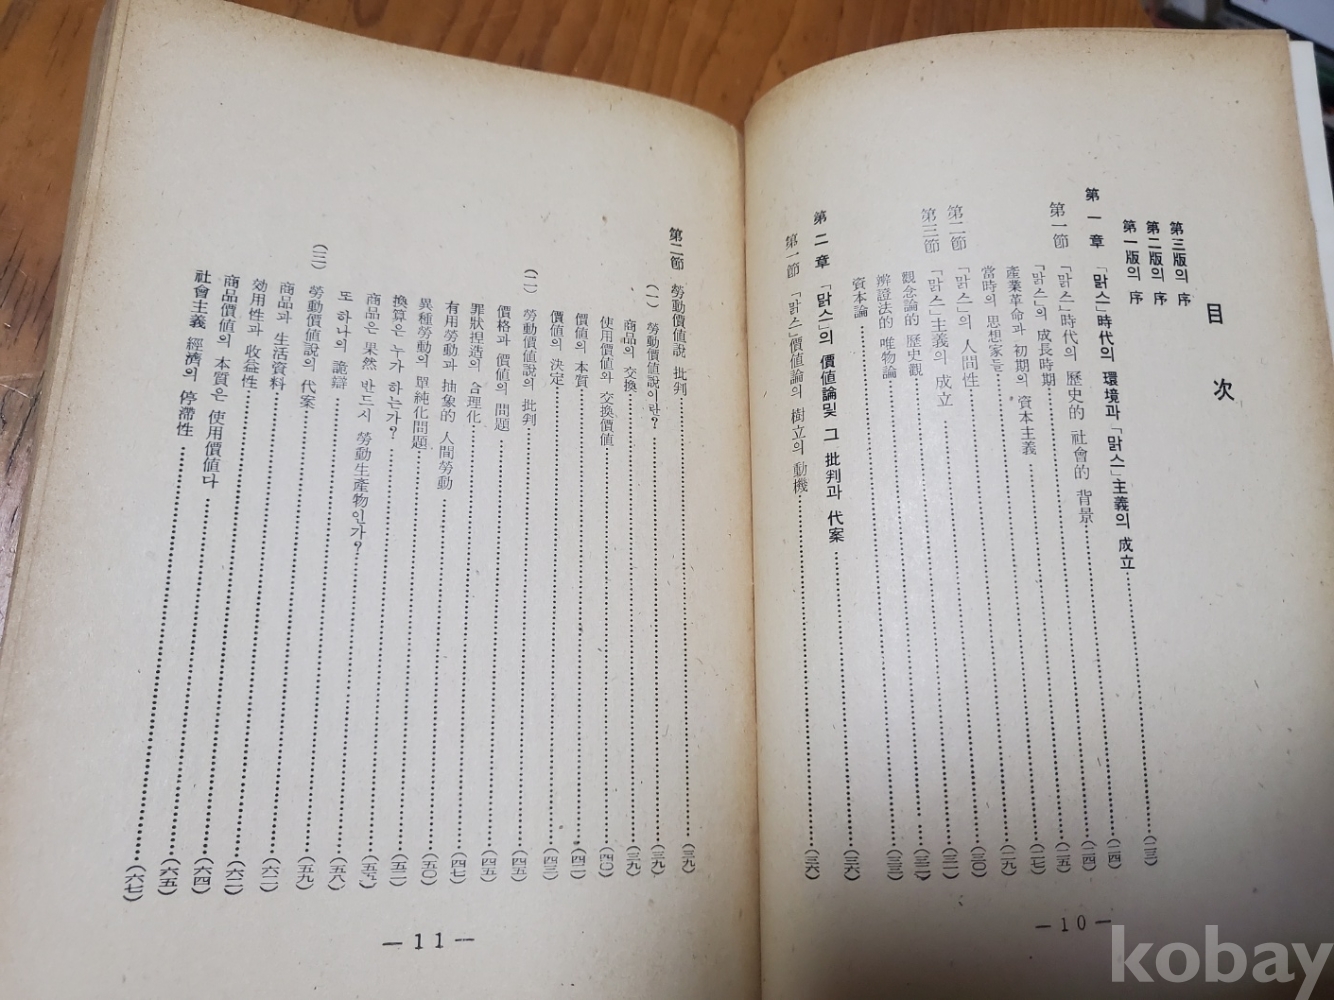 目次
第三版의 序
第二版의 序
第一版의 序
第一章 「맑스」時代의 環境과 「맑스」主義의 成立 (二三)
第一節 「맑스」時代의 歷史的 社會的 背景 (二四)
「맑스」의 成長時期 (二四)
產業革命과 初期의 資本主義 (二五)
當時의 思想家들 (二七)
第二節 「맑스」의 人間性 (二九)
第三節 「맑스」主義의 成立 (三〇)
觀念論的 歷史觀 (三一)
辨證法的 唯物論 (三二)
資本論 (三三)
第二章 「맑스」의 價値論및 그 批判과 代案 (三六)
第一節 「맑스」價値論의 樹立의 動機 (三六)
— 10 —
第二節 勞動價値說 批判 (三九)
(一) 勞動價値說이란? (三九)
商品의 交換 (三九)
使用價値와 交換價値 (四〇)
價値의 本質 (四二)
價値의 決定 (四三)
(二) 勞動價値說의 批判 (四五)
價格과 價値의 問題 (四五)
罪狀捏造의 合理化 (四七)
有用勞動과 抽象的 人間勞動 (五〇)
異種勞動의 單純化問題 (五二)
換算은 누가 하는가? (五五)
商品은 果然 반드시 勞動生產物인가? (五八)
또 하나의 詭辯 (五九)
(三) 勞動價値說의 代案 (六二)
商品과 生活資料 (六二)
効用性과 收益性 (六四)
商品價値의 本質은 使用價値다 (六五)
社會主義 經濟의 停滯性 (六七)
— 11 —
kobay